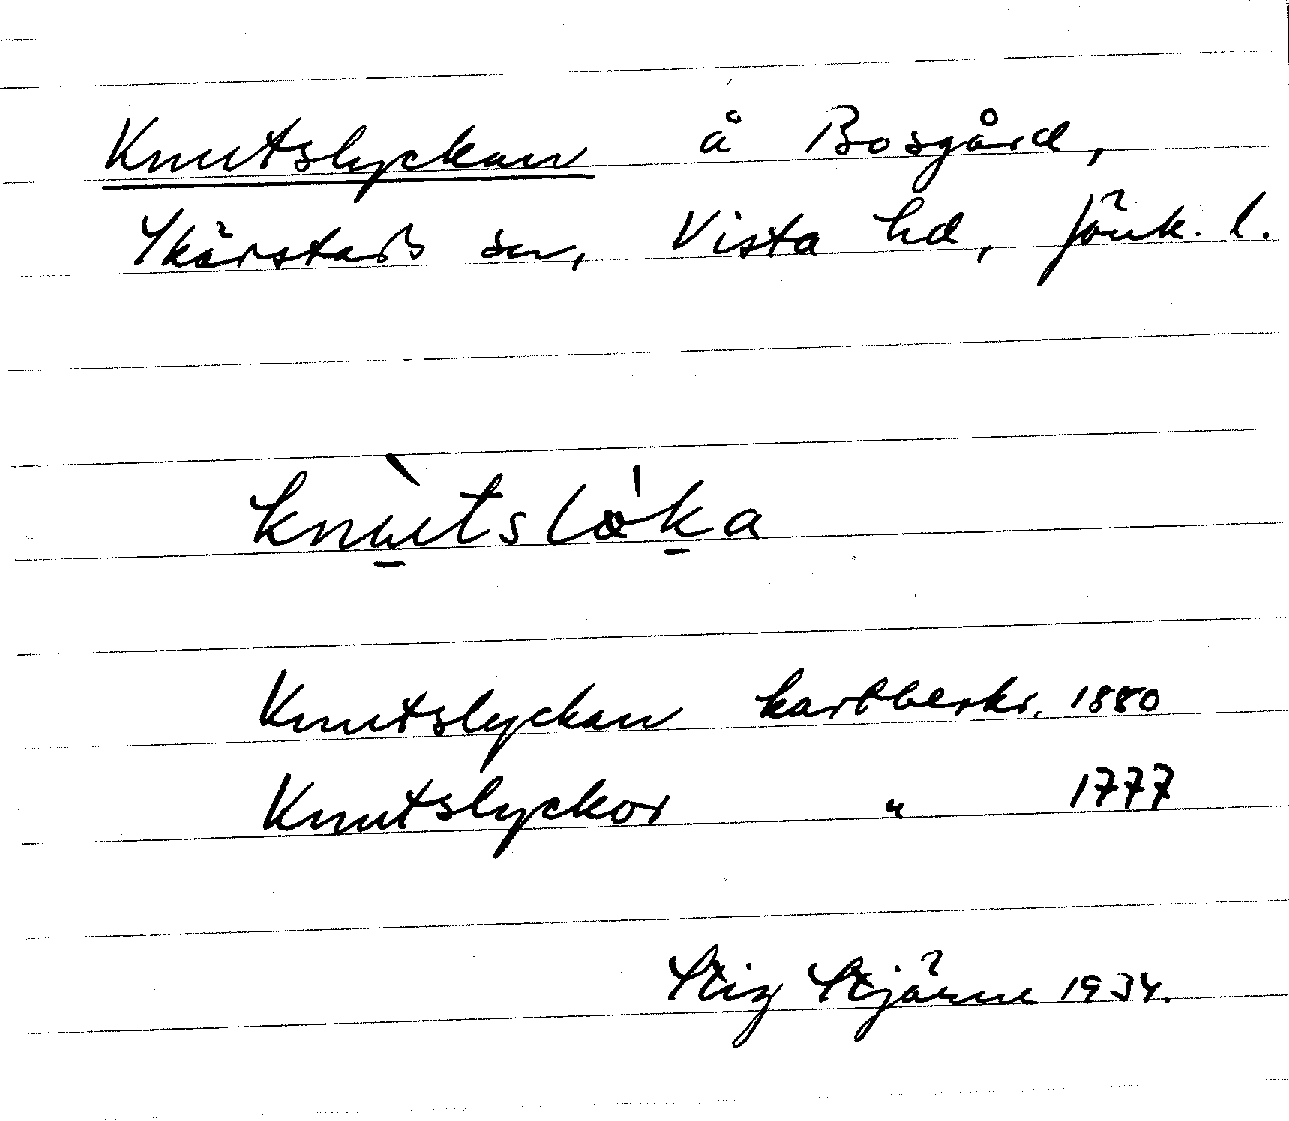 Knutslyckan å Bosgård,
Skärstads sn, Vista hd, Jönk. l.
knùtslø̍ka
Knutslyckan kartbeskr. 1880
Knutslyckor " 1777
Stig Stjärne 1934.